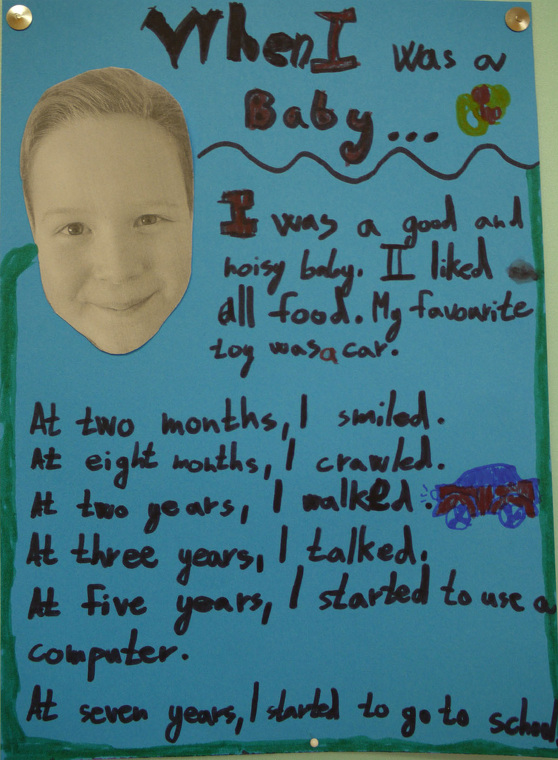 When I was a
Baby...
I was a good and
noisy baby. I liked
all food. My favourite
toy was a car.
At two months, I smiled.
At eight months, I crawled.
At two years, I walked.
At three years, I talked.
At five years, I started to use a
computer.
At seven years, I started to go to school.